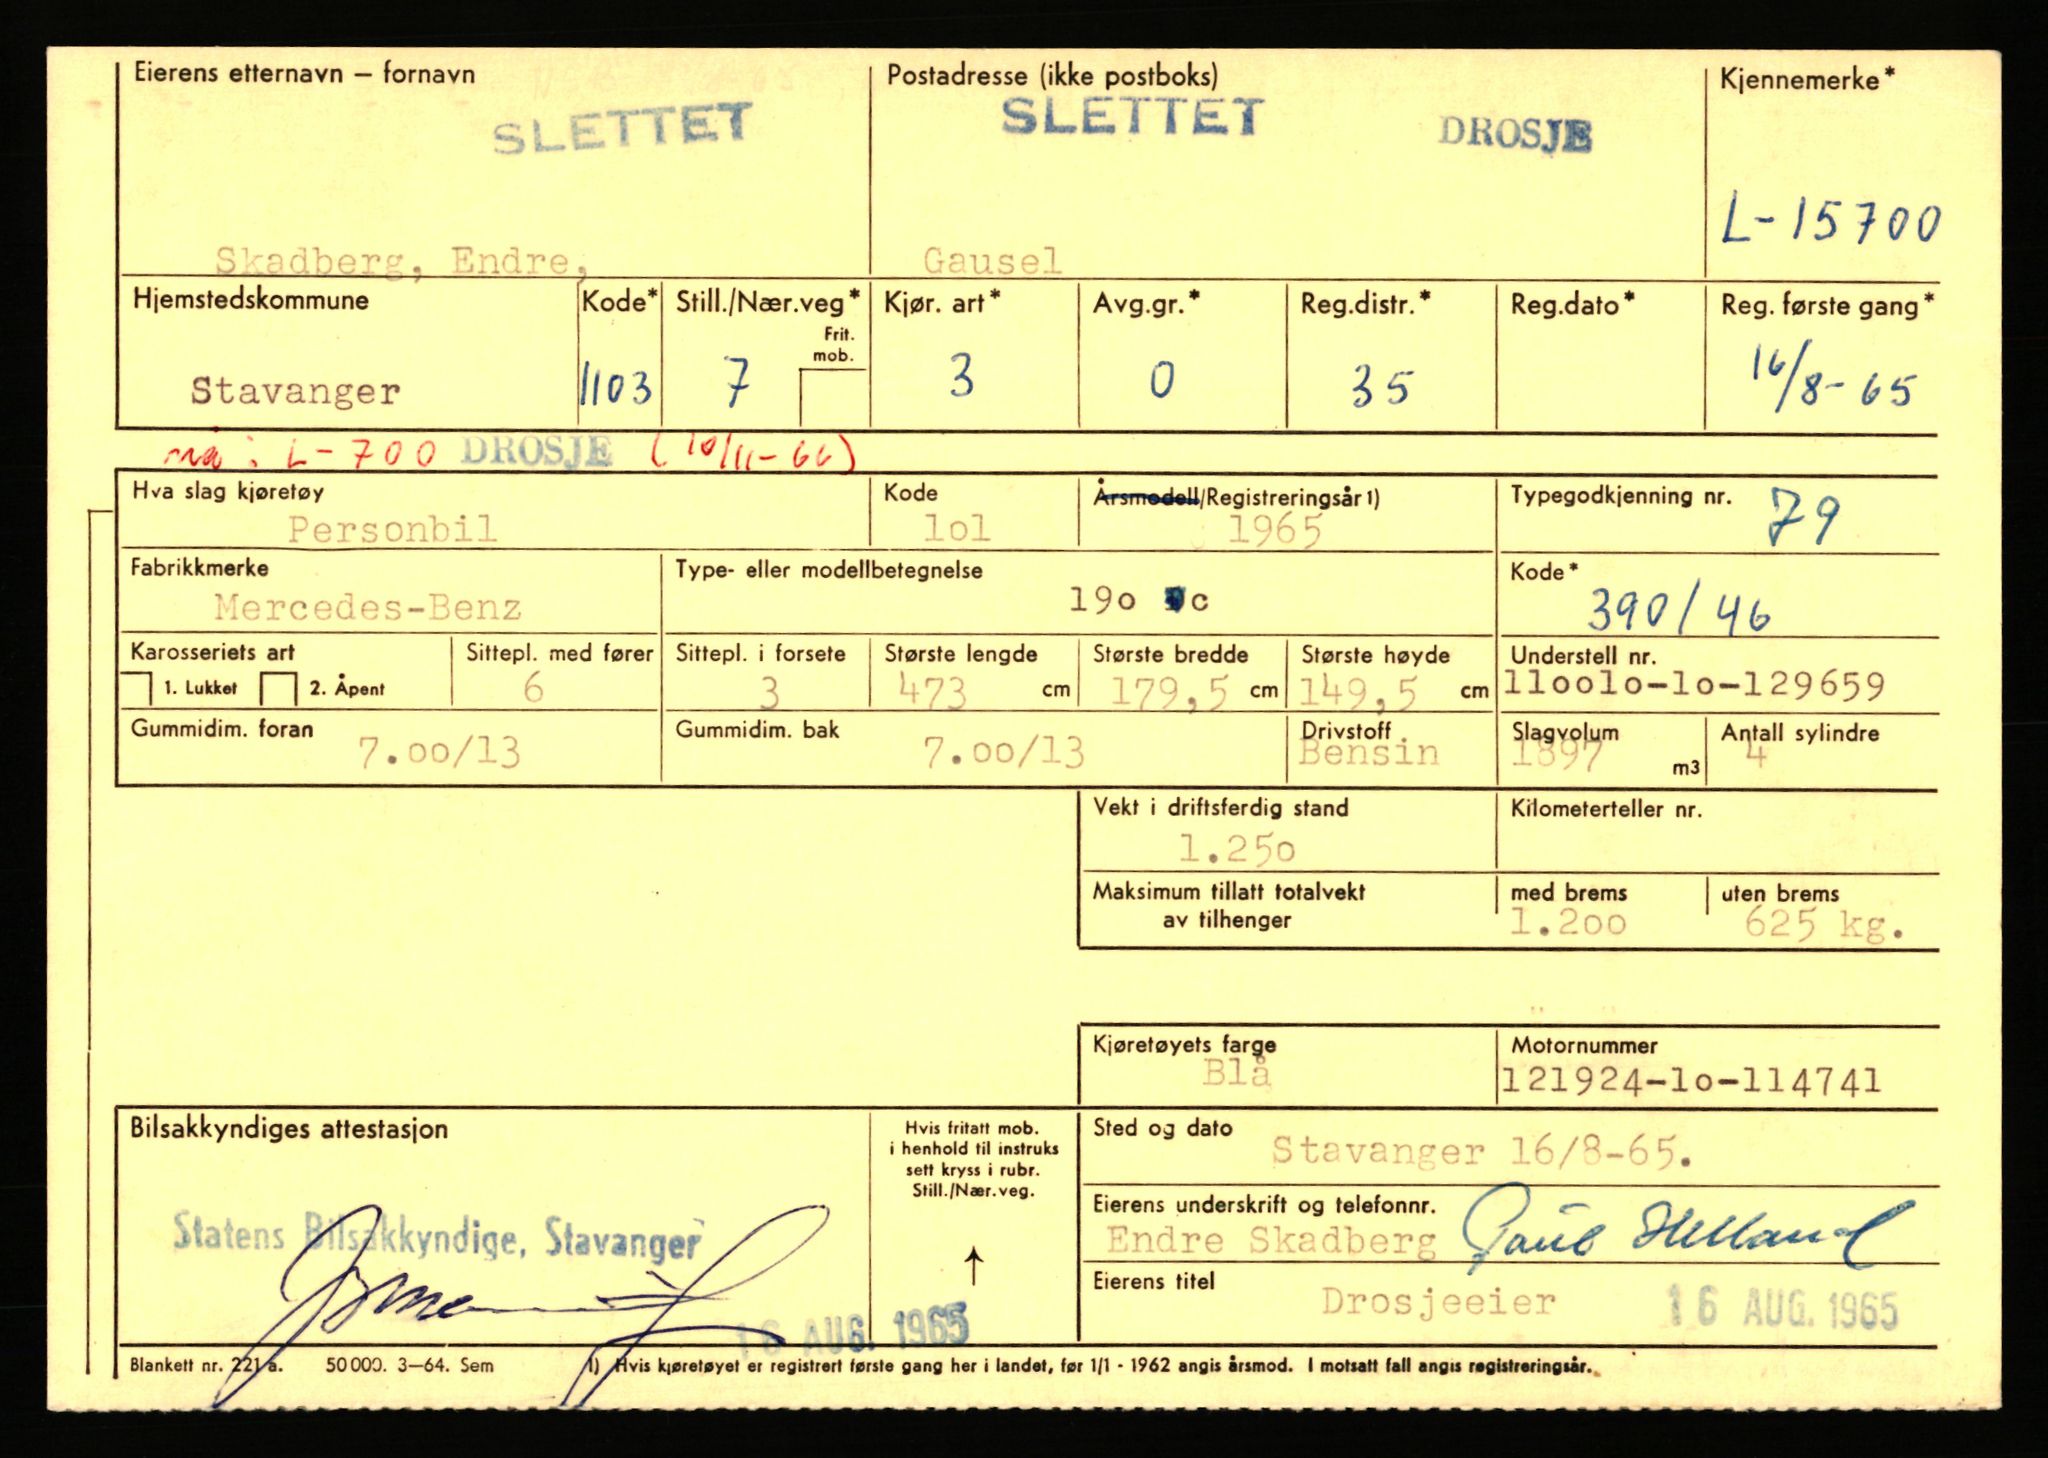 Eierens etternavn – fornavn
Postadresse (ikke postboks)
Kjennemerke*
SLETTET
SLETTET
DROSJE
L-15700
Skadberg, Endre,
Gausel
Hjemstedskommune
Kode*
Still./Nær.veg*
Kjør. art*
Avg.gr.*
Reg.distr.*
Reg.dato*
Reg. første gang*
Frit.
mob.
Stavanger
1103
7
3
0
35
16/8-65
nå: L-700 DROSJE (10/11-66)
Hva slag kjøretøy
Kode
Årsmodell/Registreringsår 1)
Typegodkjenning nr.
Personbil
lol
1965
79
Fabrikkmerke
Type- eller modellbetegnelse
Kode*
Mercedes-Benz
19o c
390/46
Karosseriets art
Sittepl. med fører
Sittepl. i forsete
Største lengde
Største bredde
Største høyde
Understell nr.
1. Lukket
2. Åpent
6
3
473 cm
179,5 cm
149,5 cm
11oo1o-1o-129659
Gummidim. foran
Gummidim. bak
Drivstoff
Slagvolum
Antall sylindre
7.oo/13
7.oo/13
Bensin
1897 m3
4
Vekt i driftsferdig stand
Kilometerteller nr.
1.25o
Maksimum tillatt totalvekt
av tilhenger
med brems
uten brems
1.2oo
625 kg.
Kjøretøyets farge
Motornummer
Blå
121924-1o-114741
Bilsakkyndiges attestasjon
Hvis fritatt mob.
i henhold til instruks
sett kryss i rubr.
Still./Nær.veg.
↑
Sted og dato
Stavanger 16/8-65.
Statens Bilsakkyndige, Stavanger
16 AUG. 1965
Eierens underskrift og telefonnr.
Endre Skadberg
Eierens titel
Drosjeeier
16 AUG. 1965
Blankett nr. 221 a. 50 000. 3–64. Sem
1) Hvis kjøretøyet er registrert første gang her i landet, før 1/1 - 1962 angis årsmod. I motsatt fall angis registreringsår.